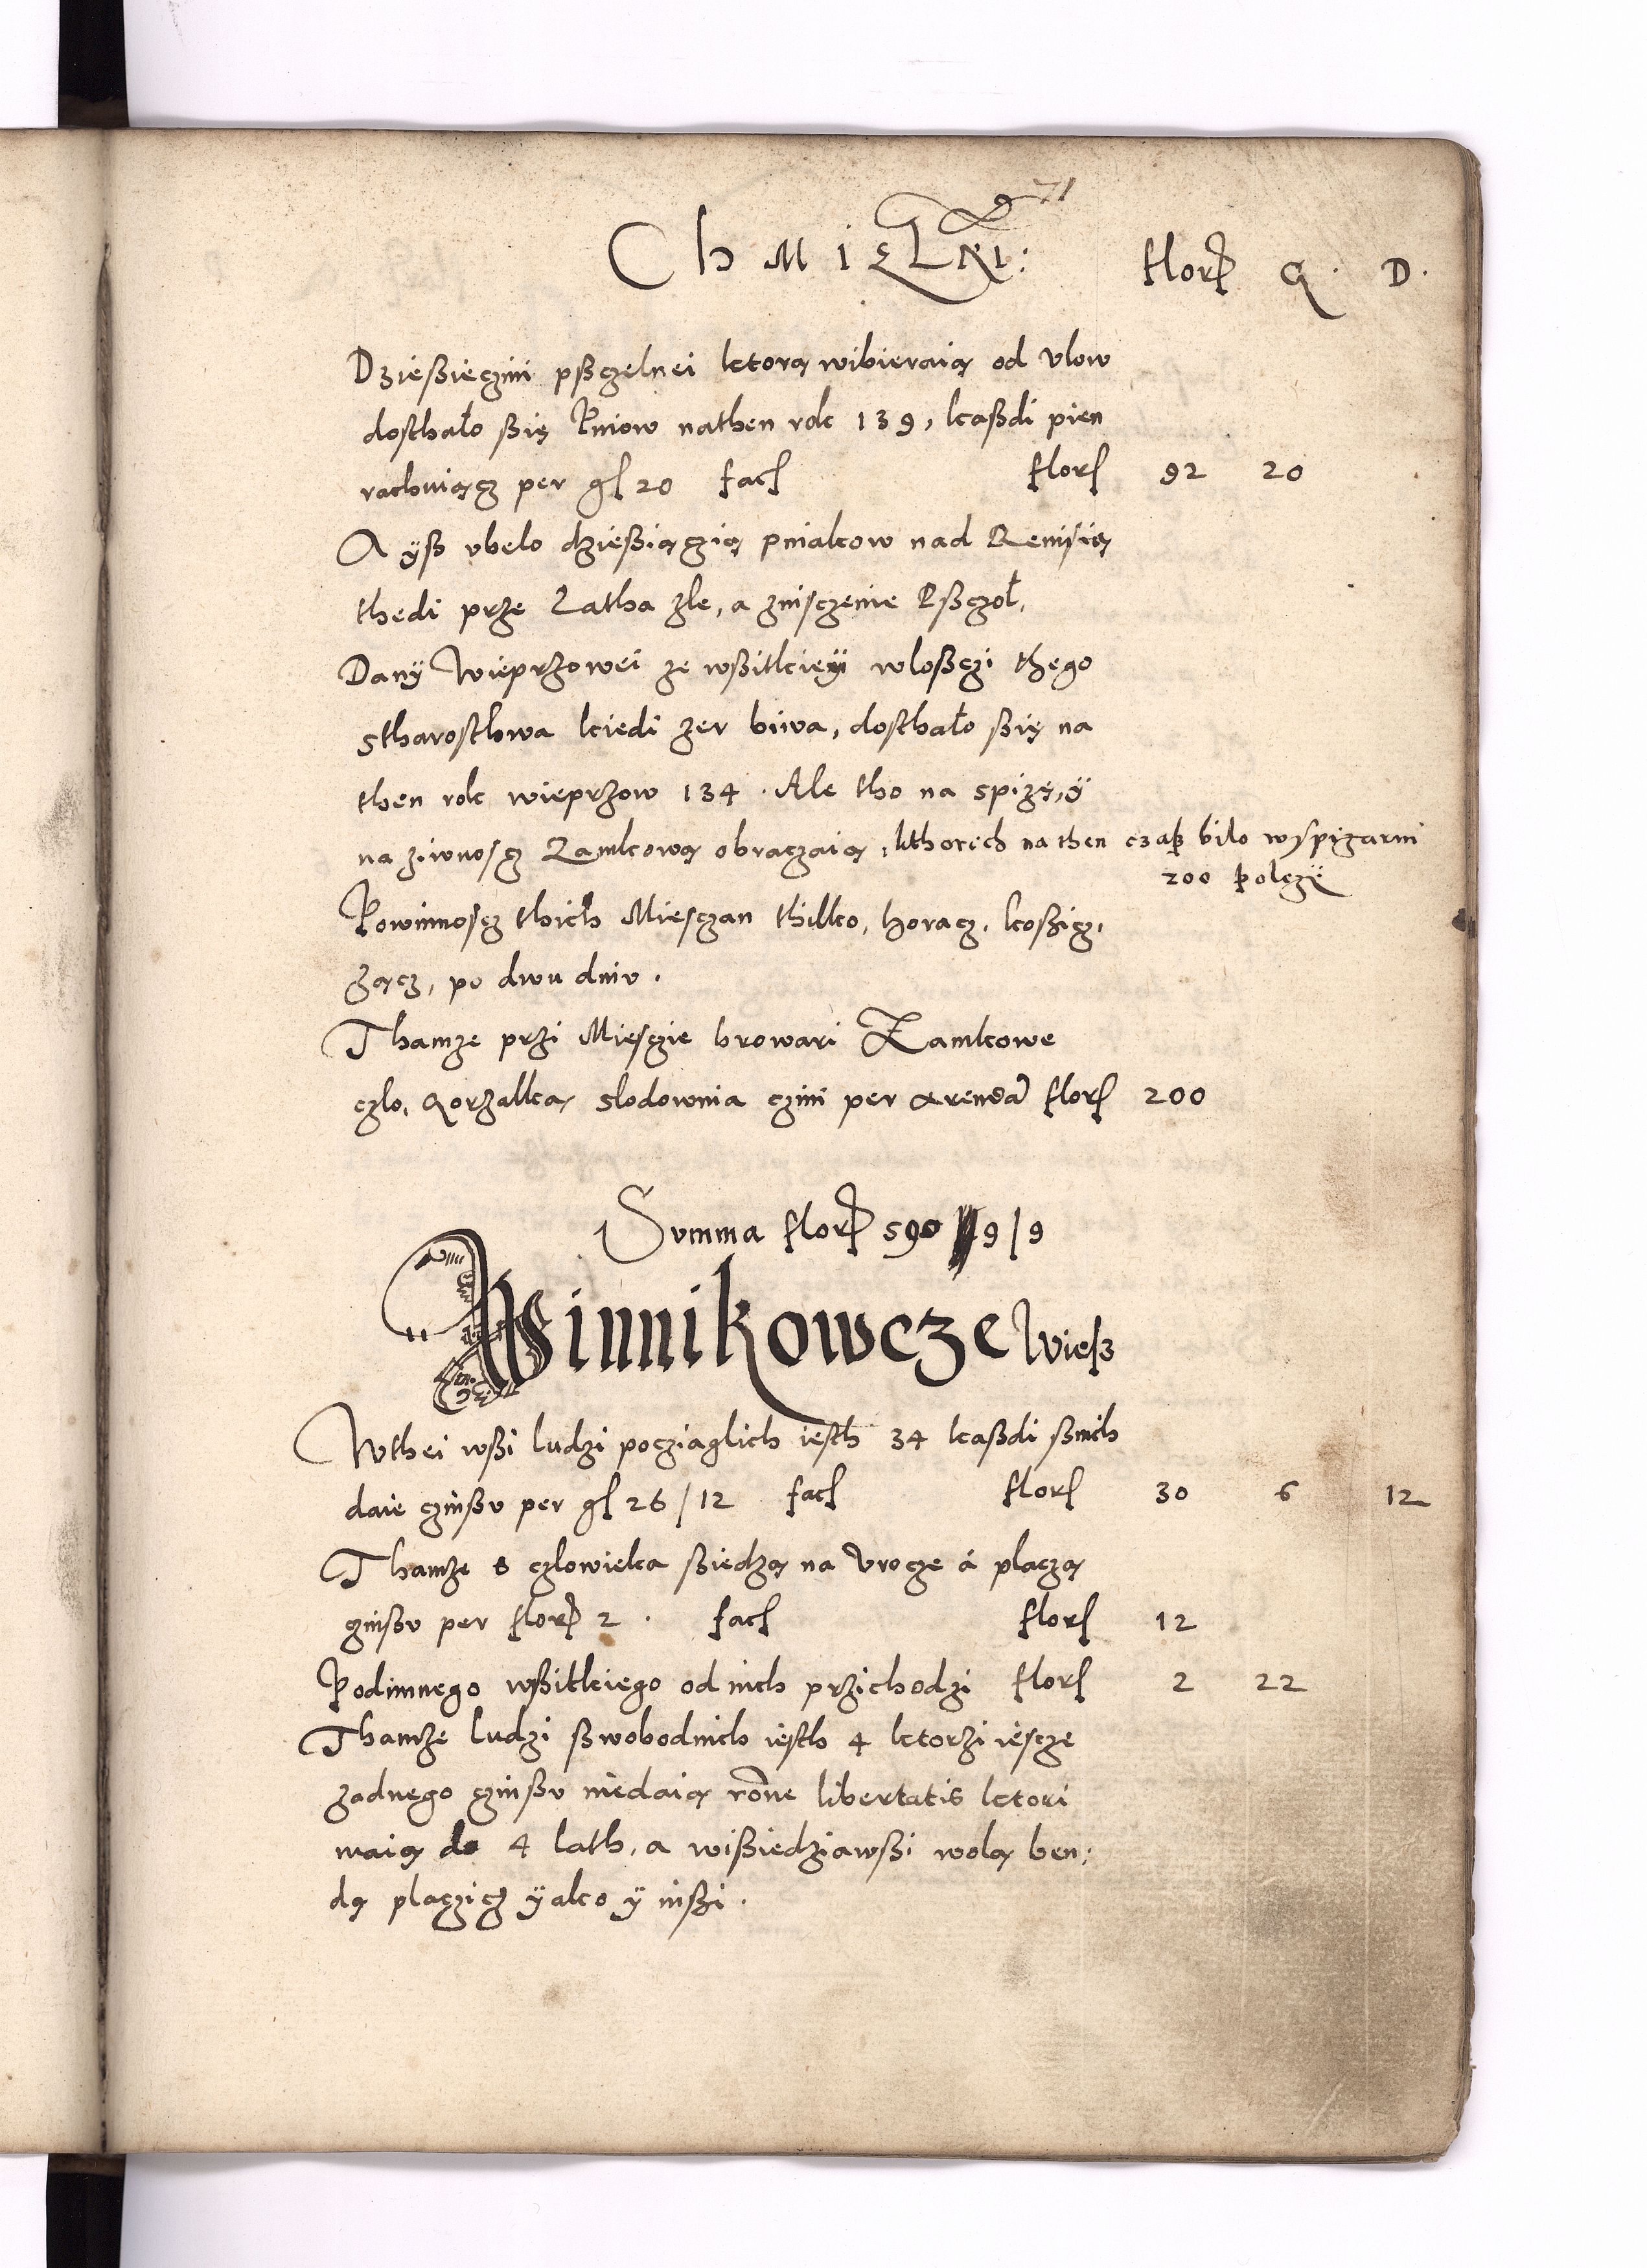 71
ChMiELNI: florß G. D.
Dzießięczini pßczelnei ktorą wibieraią od vlow
dosthało ßię Pniow nathen rok 139, kaßdi pien
rachuiącz per gſ 20 facſ florſ 92 20
A yß vbelo dzießiączią pniakow nad Remisią
thedi prze Latha zle, a zniszczenie Pßczoł,
Dany Wieprzowei ze wßitkieÿ wloßczi thego
stharosthwa kiedi zer biwa, dosthało ßię na
then rok wieprzow 134. Ale tho na spizę, ÿ
na ziwnoscz Zamkową obraczaią, kthorich na then czaß bilo wspizarni
200 polczÿ
Powinnoscz thich Miesczan thilko, horacz, koßicz,
ząncz, po dwu dniv.
Thamze przi Miesczie browari Zamkowe
czlo, Gorzalka, slodownia czini per Arendã florſ 200
Summa florß 590 9/9
Winnikowcze Wieß
Wthei wßi ludzi pocziaglich iesth 34 kaßdi ßnich
daie czinßv per gſ 26/12 facſ florſ 30 6 12
Thamze 6 czlowieka ßiedzą na Vrocze á placzą
czinßv per florß 2. facſ florſ 12
Podimnego wßitkiego od nich przichodzi florſ 2 22
Thamze ludzi ßwobodnich iesth 4 ktorzi iescze
zadnego czinßv niedaią rõne libertatis ktori
maią do 4 lath, a wißiedziawßi wolą ben:
dą placzicz ÿako ÿ inßi.